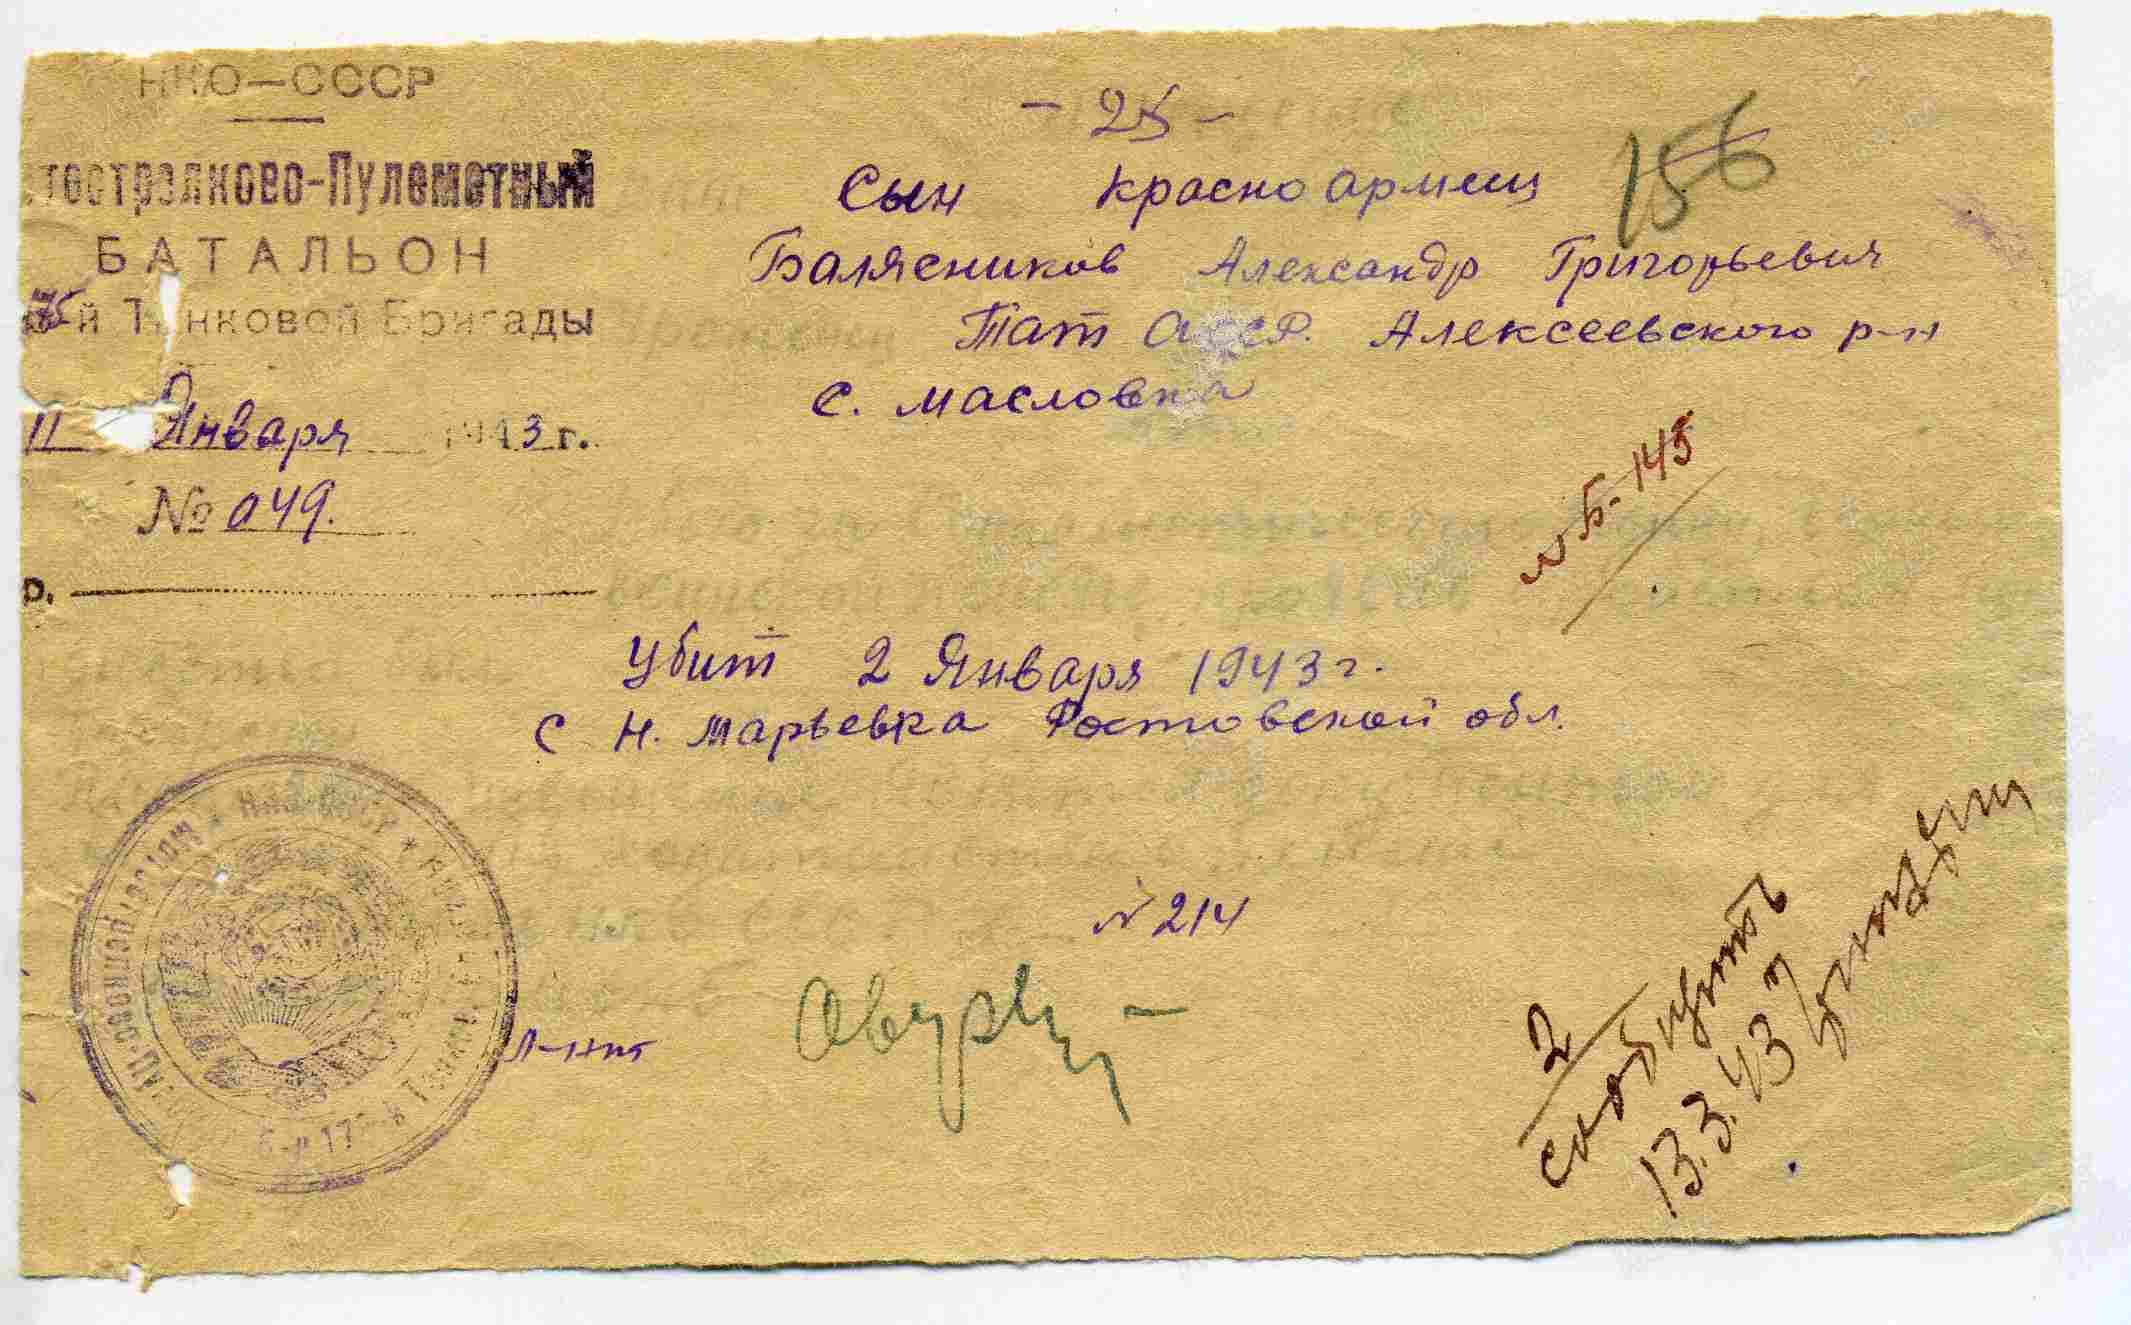 НКО-СССР
тострелково-Пулеметный
БАТАЛЬОН
й Танковой Бригады
11 Января 1943 г.
№ 049.
р.
- 25 -
156
Сын красноармеец
Балясников Александр Григорьевич
Тат АССР. Алексеевского р-н
с. Масловка
№ Б-145
Убит 2 Января 1943 г.
с Н. Марьевка Ростовской обл.
№ 214
Л-нт
2
сообщить
13.3.43